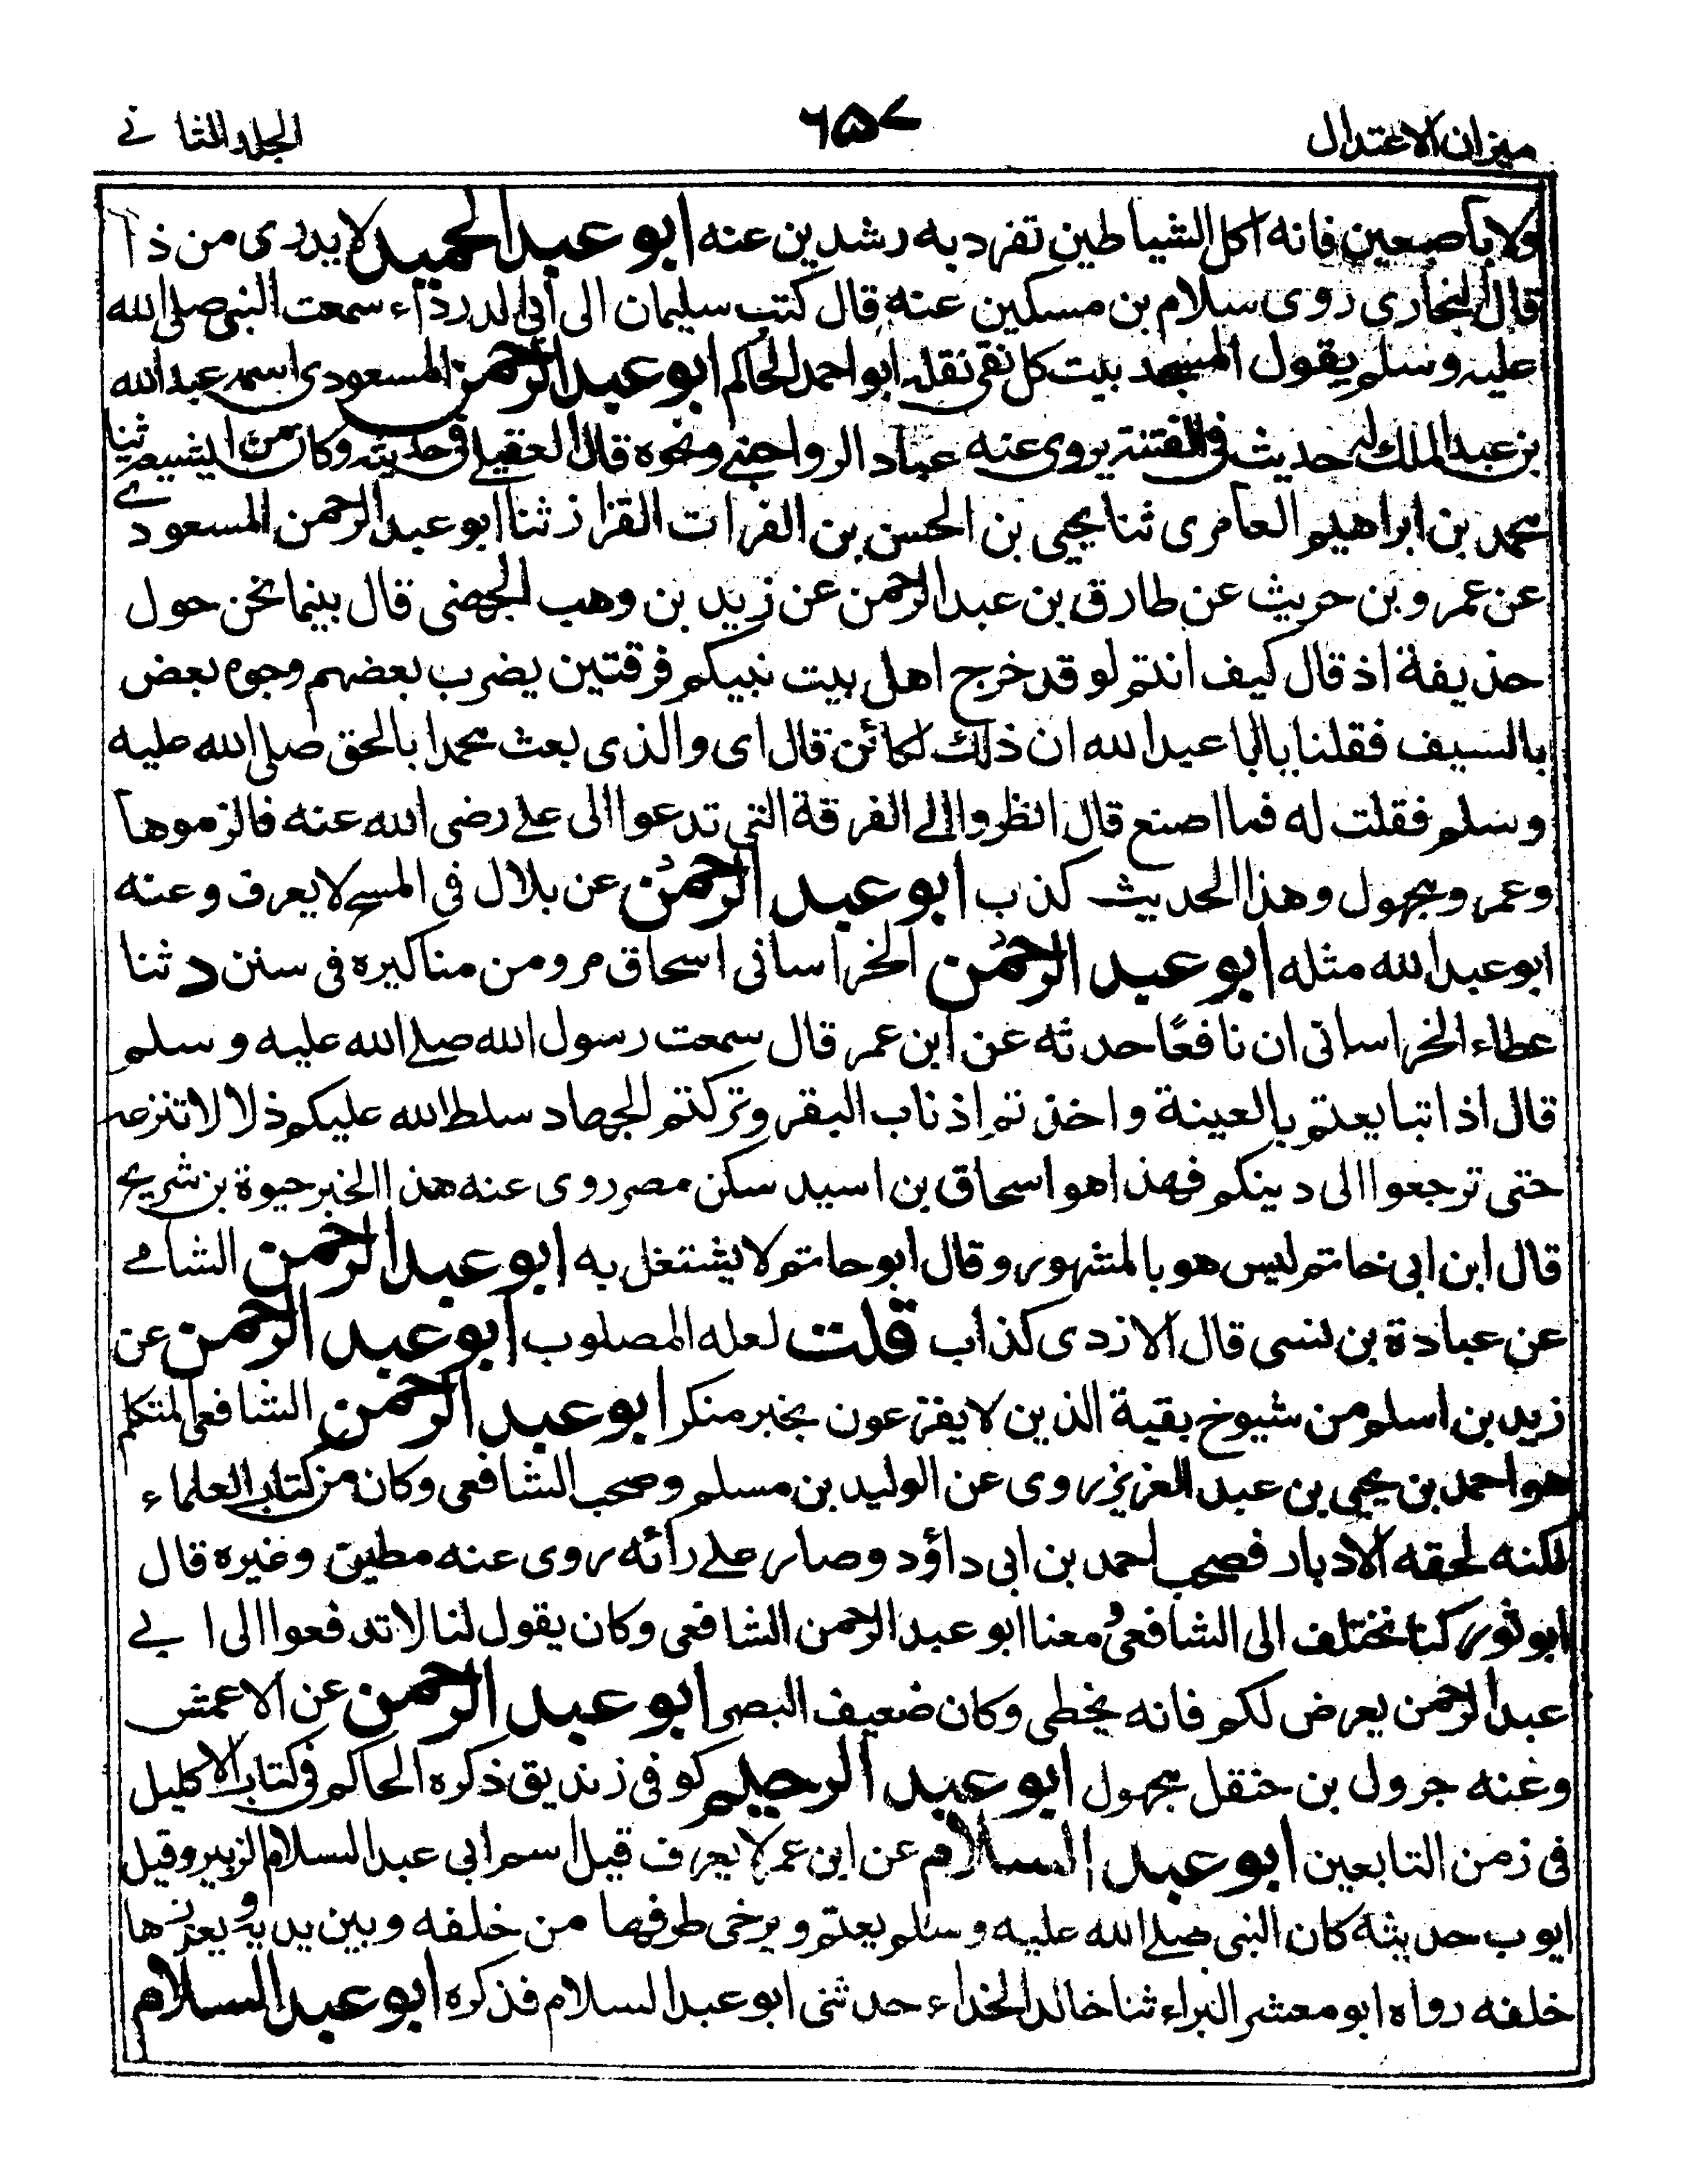 ميزان الاعتدال ٦٥٧ المجلد الثانے
ولا باصبعين فانه اكل الشياطين تفرد به رشدين عنه ابو عبد الحميد لا يدرى من ذا
قال البخارى روى سلام بن مسكين عنه قال كتب سليمان الى أبى الدرداء سمعت النبى صلى الله
عليه وسلم يقول المسجد بيت كل تقى نقله ابو احمد الحاكم ابو عبد الرحمن المسعودى اسمه عبد الله
بن عبد الملك له حديث فى الفتنة يروى عنه عباد الرواجنى ونحوه قال العقيلے فى حديثه وكان من الشيعة ثنا
محمد بن ابراهيم العامرى ثنا يحيى بن الحسن بن الفرات القزاز ثنا ابو عبد الرحمن المسعودے
عن عمرو بن حريث عن طارق بن عبد الرحمن عن زيد بن وهب الجهنى قال بينما نحن حول
حذيفة اذ قال كيف انتم لو قد خرج اهل بيت نبيكم فرقتين يضرب بعضهم وجوه بعض
بالسيف فقلنا يا ابا عبد الله ان ذلك لكائن قال اى والذى بعث محمدا بالحق صلى الله عليه
وسلم فقلت له فما اصنع قال انظروا الى الفرقة التى تدعوا الى علے رضى الله عنه فالزموها
وعمرو مجهول وهذا الحديث كذب ابو عبد الرحمٰن عن بلال فى المسح لا يعرف وعنه
ابو عبد الله مثله ابو عبد الرحمٰن الخراسانى اسحاق مر ومن مناكيره فى سنن د ثنا
عطاء الخراسانى ان نافعًا حدثه عن ابن عمر قال سمعت رسول الله صلے الله عليه وسلم
قال اذا تبايعتم بالعينة واخذتم اذناب البقر وتركتم الجهاد سلط الله عليكم ذلا لا تنزعه
حتى ترجعوا الى دينكم فهذا هو اسحاق بن اسيد سكن مصر روى عنه هذا الخبر حيوة بن شريح
قال ابن ابى حاتم ليس هو بالمشهور وقال ابو حاتم لا يشتغل به ابو عبد الرحمن الشامے
عن عبادة بن نسى قال الازدى كذاب قلت لعله المصلوب ابو عبد الرحمن عن
زيد بن اسلم من شيوخ بقية الذين لا يفزعون بخبر منكر ابو عبد الرحمن الشافعى المتكلم
هو احمد بن يحيى بن عبد العزيز روى عن الوليد بن مسلم وصحب الشافعى وكان من كتاب العلماء
لكنه لحقه الادبار فصحب احمد بن ابى داؤد وصار علے رأئه روى عنه مطين وغيره قال
ابو ثور كنا نختلف الى الشافعى ومعنا ابو عبد الرحمن الشافعى وكان يقول لنا لا تدفعوا الى ابے
عبد الرحمن يعرض لكم فانه يخطى وكان ضعيف البصر ابو عبد الرحمن عن الاعمش
وعنه جرول بن حنقل مجهول ابو عبد الرحيم كوفى زنديق ذكره الحاكم فى كتاب الاكليل
فى زمن التابعين ابو عبد السلام عن ابن عمر لا يعرف قيل اسم ابى عبد السلام الزبير وقيل
ايوب حديثه كان النبى صلے الله عليه وسلم يعتم ويرخى طرفها من خلفه وبين يديه ويغرزها
خلفه رواه ابو معشر البراء ثنا خالد الحذاء حدثنى ابو عبد السلام فذكره ابو عبد السلام